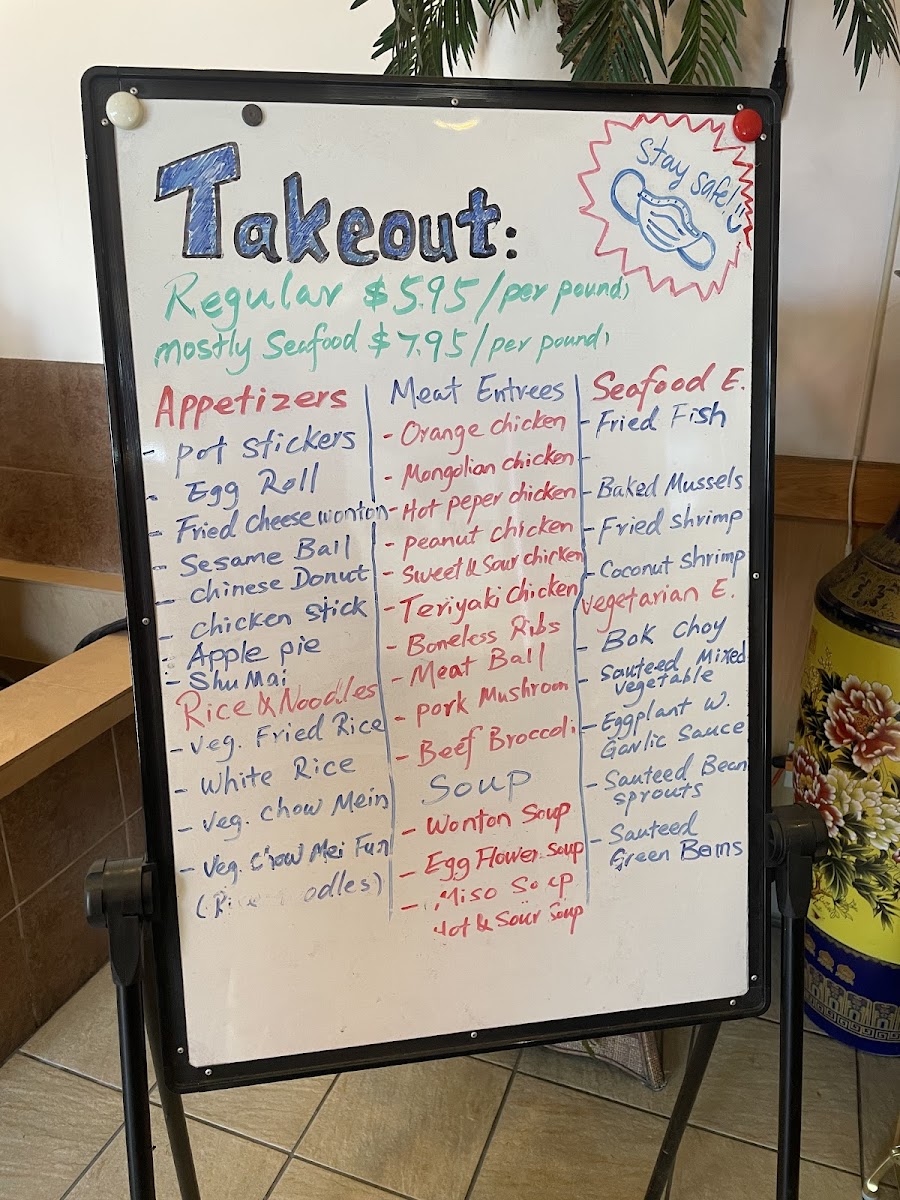 Takeout:
Stay safe!
Regular $5.95/per pound
mostly Seafood $7.95/per pound
Appetizers
- Pot Stickers
- Egg Roll
- Fried cheese wonton
- Sesame Ball
- Chinese Donut
- Chicken Stick
- Apple pie
- Shu Mai
Rice & Noodles
- Veg. Fried Rice
- White Rice
- Veg. Chow Mein
- Veg. Chow Mei Fun
Meat Entrees
- Orange chicken
- Mongolian chicken
- Hot peper chicken
- Peanut chicken
- Sweet & Sour chicken
- Teriyaki chicken
- Boneless Ribs
- Meat Ball
- Pork Mushroom
- Beef Broccoli
Soup
- Wonton Soup
- Egg Flower Soup
- Miso Soup
Hot & Sour Soup
Seafood E.
- Fried Fish
-
- Baked Mussels
- Fried shrimp
- Coconut shrimp
Vegetarian E.
- Bok Choy
- Sauteed Mixed
vegetable
- Eggplant W.
Garlic Sauce
- Sauteed Bean
sprouts
- Sauteed
Green Beans